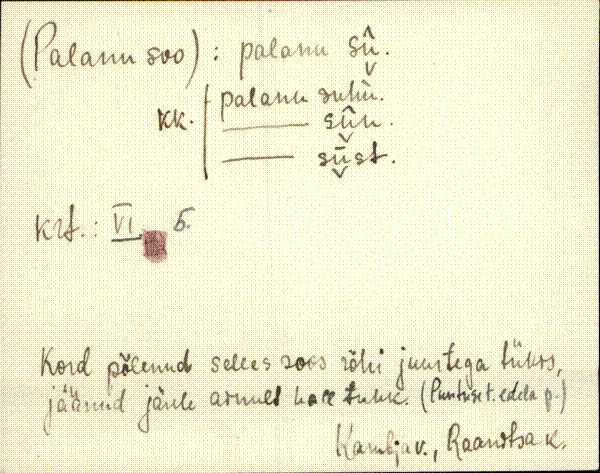 (Palanu soo) : palanu sū̬̂.
kk. palanu suhū.
——— sū̬̂n.
——— sū̬st.
krt. : VI. 5.
Kord põlenud selles soos rõhi juurtega tükis,
jäänud järele ainult hall tuhk. (Puntuse t. edela p.)
Kambja v., Raanitsa k.